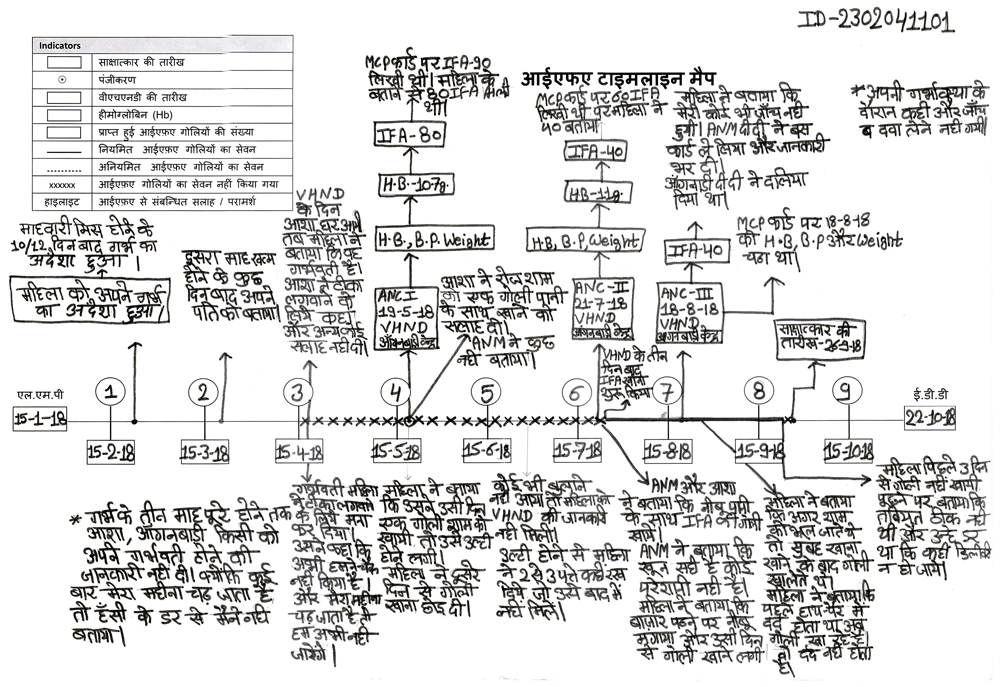 ID-2302041101
Indicators
साक्षात्कार की तारीख
पंजीकरण
वीएचएनडी की तारीख
हीमोग्लोबिन (Hb)
प्राप्त हुई आईएफ़ए गोलियों की संख्या
नियमित आईएफ़ए गोलियों का सेवन
अनियमित आईएफ़ए गोलियों का सेवन
xxxxxx आईएफ़ए गोलियों का सेवन नहीं किया गया
हाइलाइट आईएफ़ए से संबन्धित सलाह / परामर्श
आईएफ़ए टाइमलाइन मैप
MCP कार्ड पर IFA-90
लिखी थी। महिला के
बताने से 80 IFA मिली
थी।
IFA-80
H.B-10.7g.
H.B, B.P, Weight
ANC I
19-5-18
VHND
आंगनबाड़ी केन्द्र
MCP कार्ड पर 60 IFA
लिखी थी पर महिला ने
40 बताया
IFA-40
HB-11g.
H.B, B.P, Weight
ANC-II
21-7-18
VHND
आंगनबाड़ी केन्द्र
महिला ने बताया कि
मेरी कोई भी जाँच नही
हुयी। ANM दीदी ने बस
कार्ड ले लिया और जानकारी
भर दी।
आंगनबाडी दीदी ने दलिया
दिया था।
IFA-40
ANC-III
18-8-18
VHND
आंगनबाड़ी केन्द्र
MCP कार्ड पर 18-8-18
को H.B, B.P और Weight
चढा था।
* अपनी गर्भावस्था के
दौरान कही और जाँच
व दवा लेने नही गयी।
माहवारी मिस होने के
10/12 दिन बाद गर्भ का
अंदेशा हुआ।
महिला को अपने गर्भ
का अंदेशा हुआ।
दूसरा माह खत्म
होने के कुछ
दिन बाद अपने
पति को बताया।
VHND
के दिन
आशा घर आयी
तब महिला ने
बताया कि वह
गर्भवती है।
आशा ने टीका
लगवाने के
लिये कहा
और अन्य कोई
सलाह नही दी।
आशा ने रोज शाम
को एक गोली पानी
के साथ खाने की
सलाह दी।
ANM ने कुछ
नही बताया।
VHND के तीन
दिन बाद
IFA खाना
शुरू किया
साक्षात्कार की
तारीख-26-9-18
एल.एम.पी
15-1-18
1
2
3
4
5
6
7
8
9
ई.डी.डी
22-10-18
15-2-18
15-3-18
15-4-18
15-5-18
15-6-18
15-7-18
15-8-18
15-9-18
15-10-18
* गर्भ के तीन माह पूरे होने तक
आशा, आंगनबाडी किसी को
अपने गर्भवती होने की
जानकारी नही दी। क्योंकि कई
बार मेरा महीना चढ़ जाता है
तो हँसी के डर से मैंने नही
बताया।
गर्भवती महिला
ने टीका लगवाने
के लिये मना
कर दिया।
उसने कहा कि
अभी हमने
नही किया है।
और मेरा महीना
चढ़ जाता है तो
हम अभी नही
जायेंगे।
महिला ने बताया
कि उसने उसी दिन
एक गोली शाम को
खायी तो उसे उल्टी
होने लगी।
महिला ने दूसरे
दिन से गोली
खाना छोड दी।
कोई भी बुलाने
नही आया तो महिला को
VHND की जानकारी
नही मिली।
उल्टी होने से महिला
ने 2 से 3 पत्ते कही रख
दिये जो उसे बाद में
नही मिले।
ANM और आशा
ने बताया कि नीबू पानी
के साथ IFA की गोली
खाये।
ANM ने बताया कि
खून सही है कोई
परेशानी नही है।
महिला ने बताया कि
बाजार पडने पर नीबू
मंगाया और उसी दिन
से गोली खाने लगी
महिला ने बताया
कि अगर शाम
को भूल जाते थे
तो सुबह खाना
खाने के बाद गोली
खा लेते थे।
महिला ने बताया कि
पहले हाथ पैर में
दर्द होता था अब
गोली खा रहे है।
तो दर्द नही होता
है।
महिला पिछले 3 दिन
से गोली नही खायी
पूछने पर बताया कि
तबियत ठीक नही
थी और उन्हे डर
था कि कही डिलीवरी
न हो जाये।